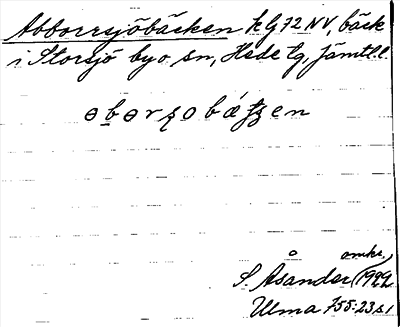 Abborrsjöbäcken kg 72 NV, bäck
i Storsjö by o. sn, Hede tg, Jämtl. l.
omkr.
S. Åsander (1922
Ulma 755:23 s 1